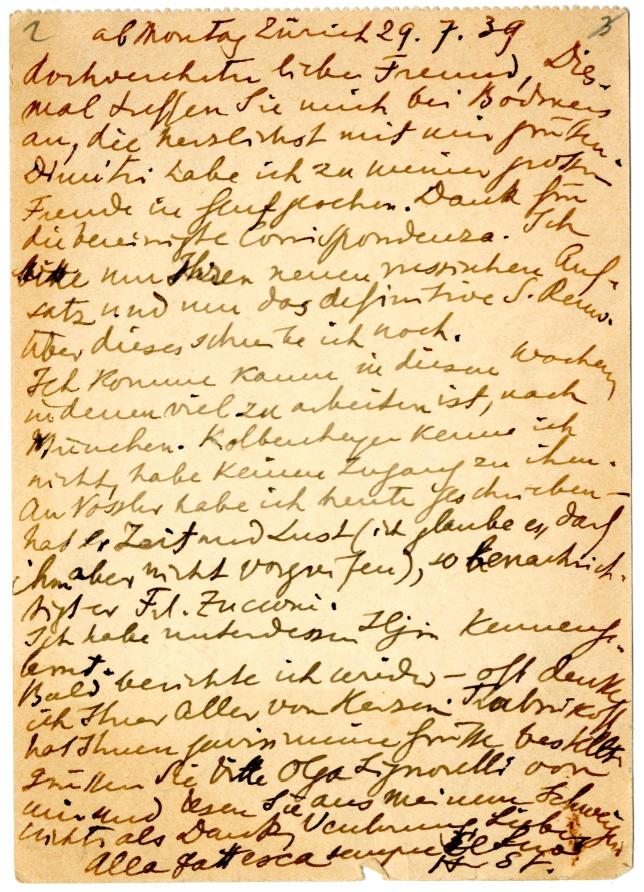 ab Montag Zürich 29. 7. 39
Hochverehrter lieber Freund, Dies-
mal treffen Sie mich bei Bodmers
an, die herzlichst mit mir grüssen.
Dimitri habe ich zu meiner grossen
Freude in Genf gesehen. Dank für
die bereinigte Corrispondenza. Ich
bitte nur Ihren neuen russischen Auf-
satz und nun das definitive S. Remo.
Über dieses schreibe ich noch.
Ich komme kaum in diesen Wochen,
in denen viel zu arbeiten ist, nach
München. Kolbenheyer kenne ich
nicht, habe keinen Zugang zu ihm.
An Vossler habe ich heute geschrieben –
hat er Zeit und Lust (ich glaube es, darf
ihm aber nicht vorgreifen), so benachrich-
tigt er Frl. Zucconi.
Ich habe unterdessen Iljin kennenge-
lernt.
Bald berichte ich wieder – oft denke
ich Ihrer Aller von Herzen.
hat Ihnen gewiss meine Grüsse bestellt.
Grüssen Sie bitte Olga Signorelli von
mir und lesen Sie aus meinem Schweigen
nichts als Dank, Verehrung, Liebe
Alla fattesca sempre